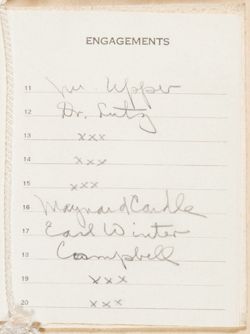 ENGAGEMENTS
11 Mr. Upper
12 Dr. Lutz
13 xxx
14 xxx
15 xxx
16 Maynard Caudle
17 Earl Winter
18 Campbell
19 xxx
20 xxx